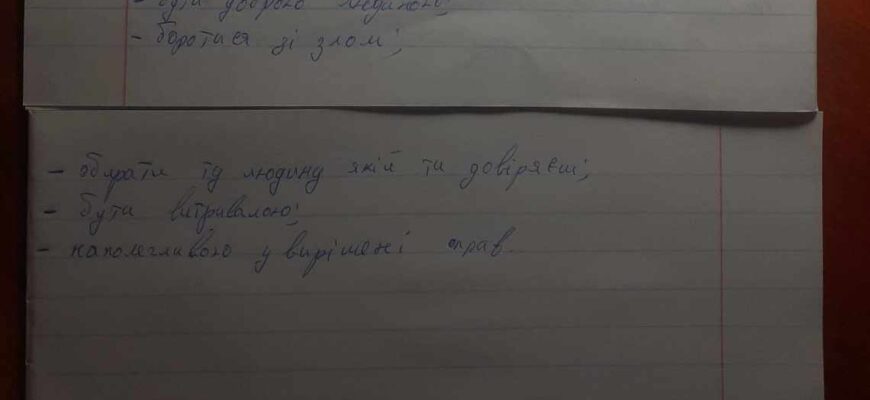 - бути доброю людиною;
- боротися зі злом;
- обирати ту людину якій ти довіряєш;
- бути витривалою;
- наполегливою у вирішені справ.